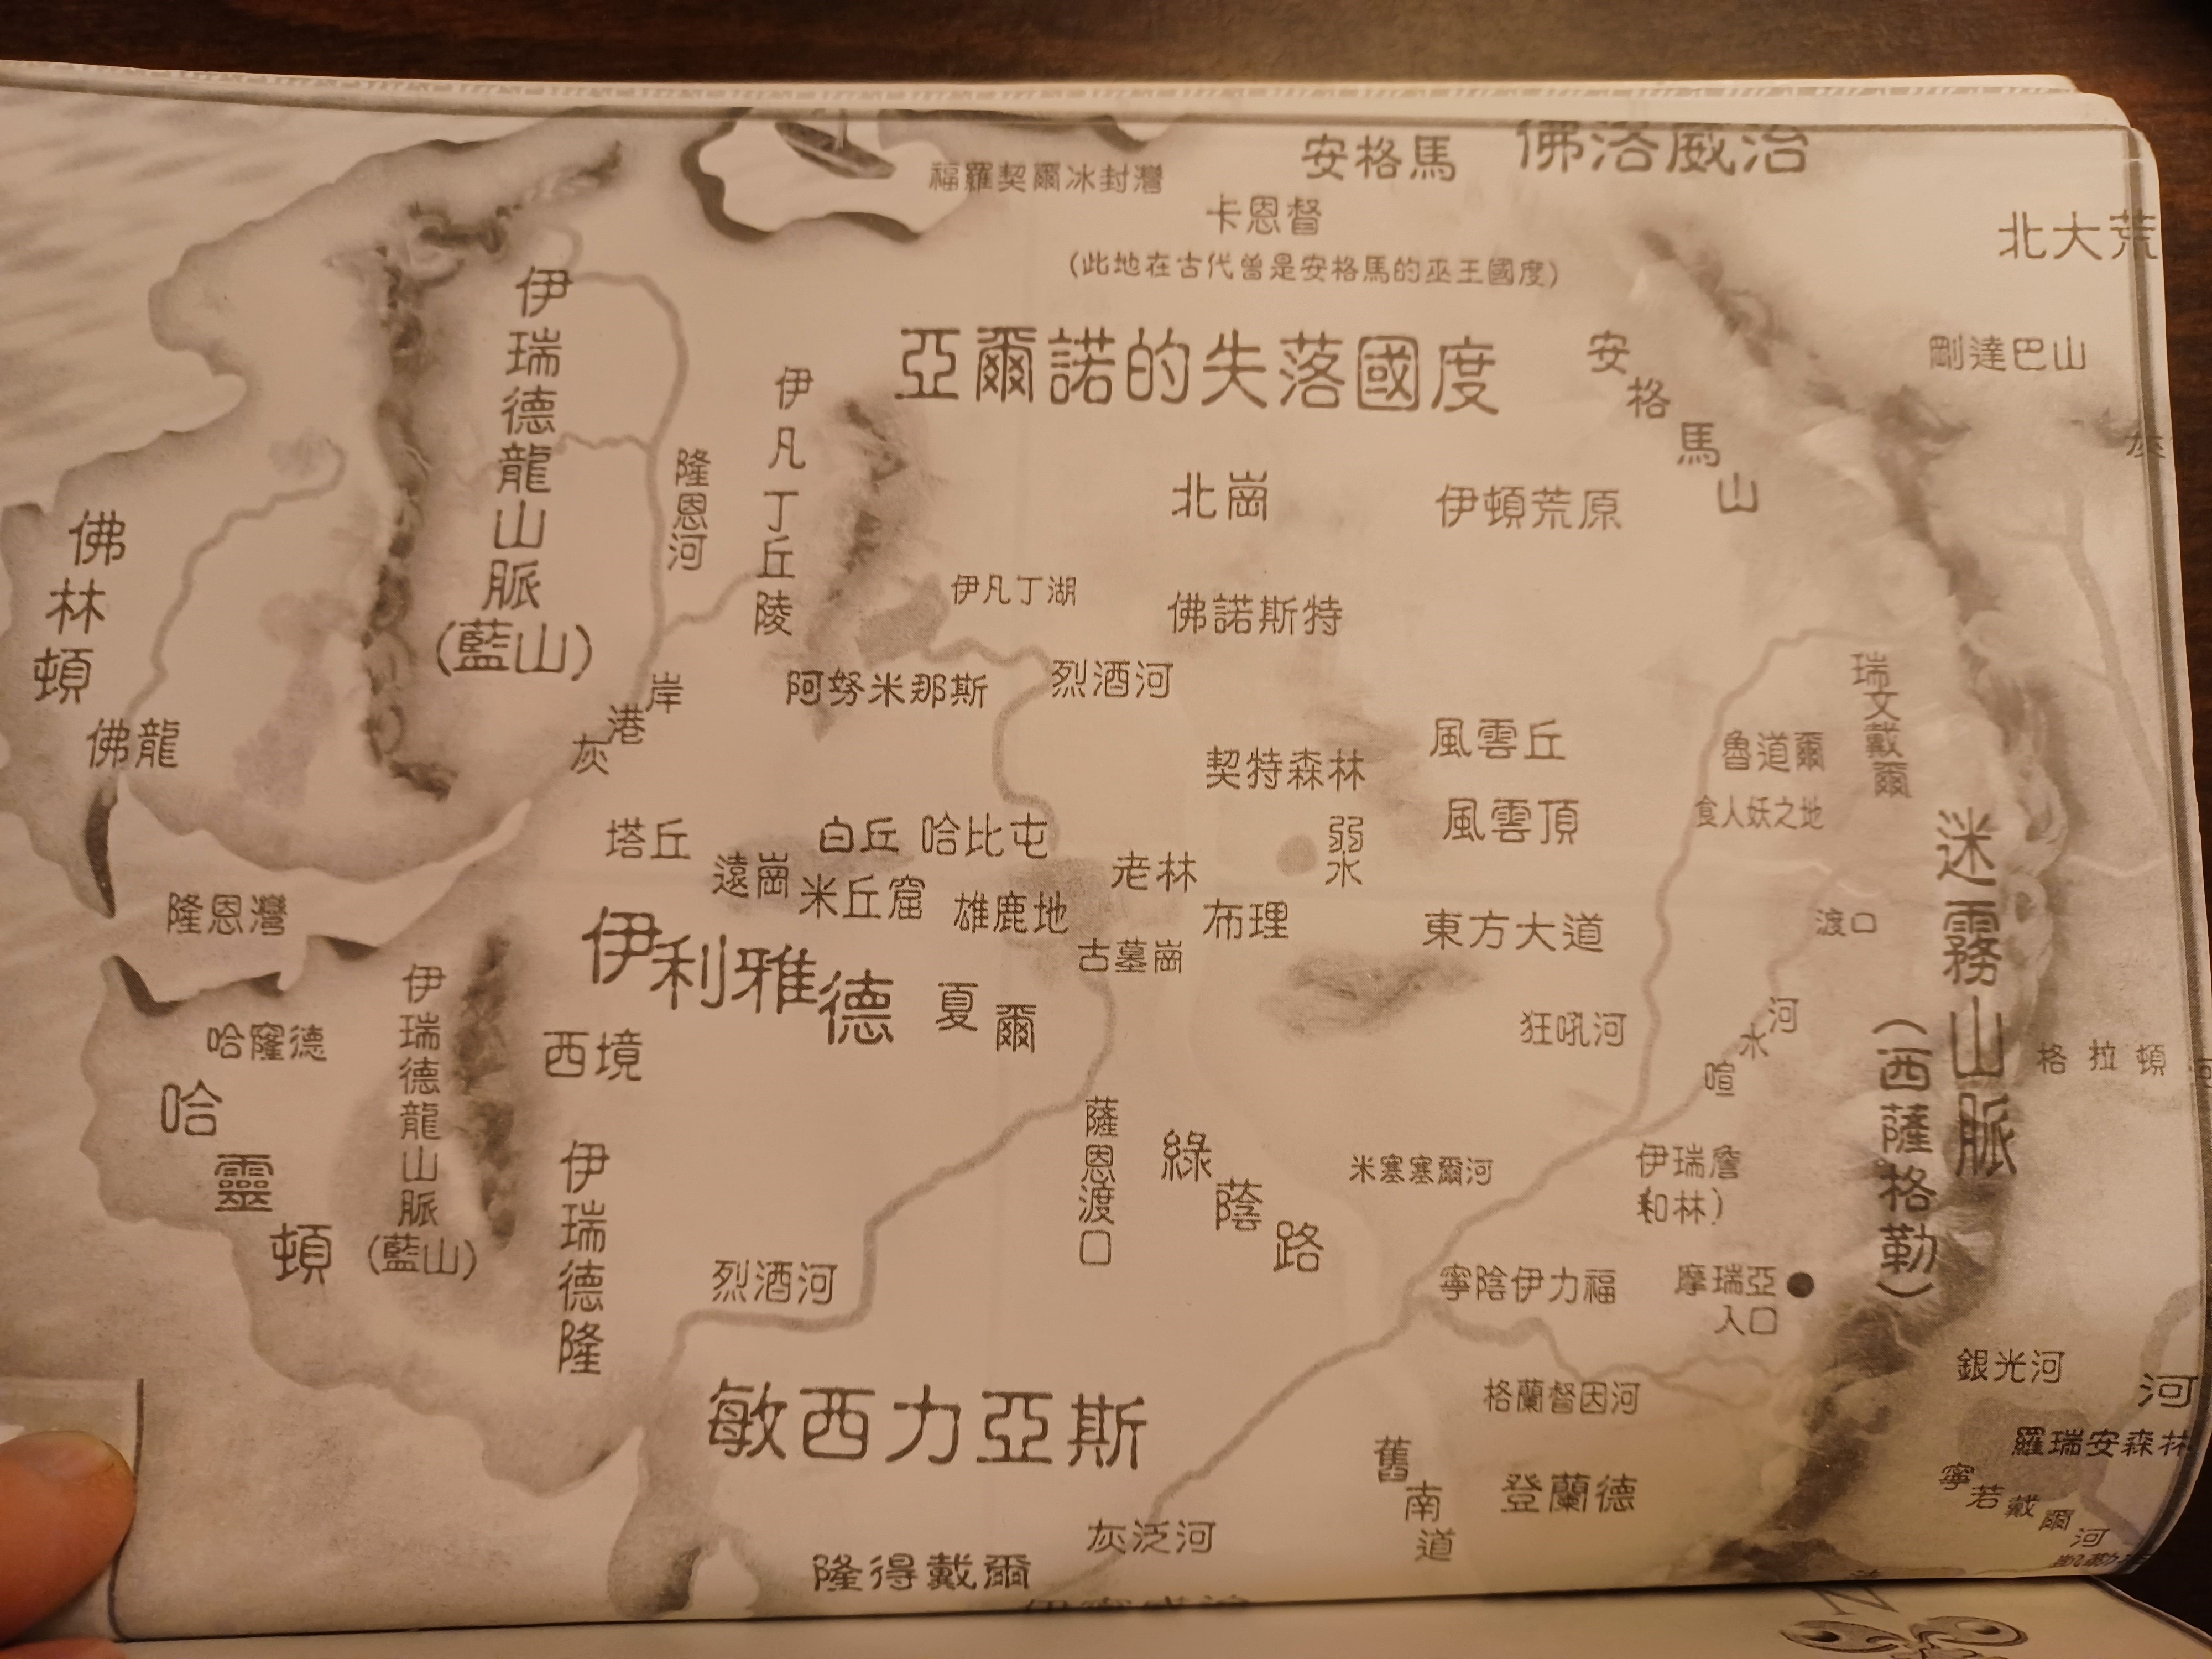 安格馬
佛洛威治
福羅契爾冰封灣
卡恩督
(此地在古代曾是安格馬的巫王國度)
北大荒
亞爾諾的失落國度
安格馬山
剛達巴山
伊瑞德龍山脈
(藍山)
隆恩河
伊凡丁丘陵
北崗
伊頓荒原
佛林頓
佛龍
伊凡丁湖
佛諾斯特
阿努米那斯
烈酒河
灰港岸
契特森林
風雲丘
風雲頂
弱水
瑞文戴爾
魯道爾
食人妖之地
塔丘
遠崗
白丘
哈比屯
米丘窟
雄鹿地
老林
布理
古墓崗
東方大道
渡口
迷霧山脈
(西薩格勒)
隆恩灣
伊利雅德
夏爾
西境
哈窿德
哈靈頓
伊瑞德龍山脈
(藍山)
伊瑞德隆
狂吼河
喧水河
格拉頓
薩恩渡口
綠蔭路
米塞塞爾河
伊瑞詹
和林)
烈酒河
寧陰伊力福
摩瑞亞
入口
銀光河
河
敏西力亞斯
格蘭督因河
羅瑞安森林
寧若戴爾河
舊南道
登蘭德
灰泛河
隆得戴爾